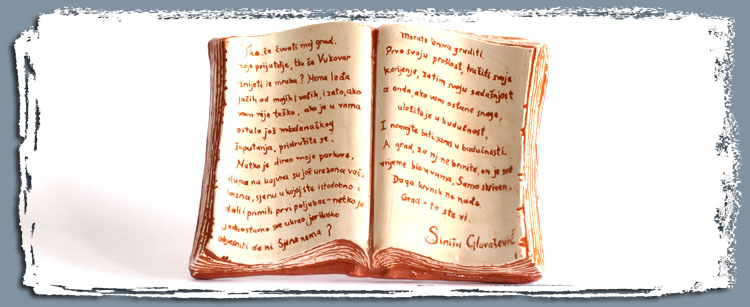 Tko će čuvati moj grad,
moje prijatelje, tko će Vukovar
iznijeti iz mraka? Nema leđa
jačih od mojih i vaših, i zato, ako
vam nije teško, ako je u vama
ostalo još mladenačkog
šaputanja, pridružite se.
Netko je dirao moje parkove,
klupe na kojima su još urezana vaša
imena, sjenu u kojoj ste istodobno i
dali i primili prvi poljubac - netko je
jednostavno sve ukrao, jer kako
objasniti da ni Sjene nema?
morate iznova graditi.
Prvo svoju prošlost, tražiti svoje
korijenje, zatim svoju sadašnjost
a onda, ako vam ostane snage,
uložite je u budućnost.
I nemojte biti sami u budućnosti.
A grad, za nj ne brinite, on je sve
vrijeme bio u vama. Samo skriven.
Da ga krvnik ne nađe.
Grad - to ste vi.
Siniša Glavašević